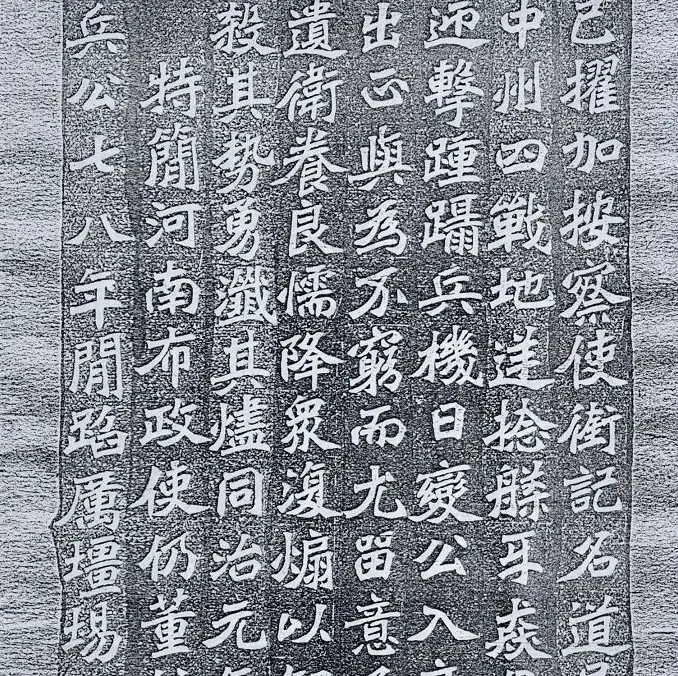 已擢加按察使銜記名道
中州四戰地逆捻滕牙
迎擊踵躡兵機日變公入
出正與為不窮而尤留意
遺衛養良懦降衆復煽以
殺其勢勇殲其燼同治元
特簡河南布政使仍董
兵公七八年閒蹈厲壃埸